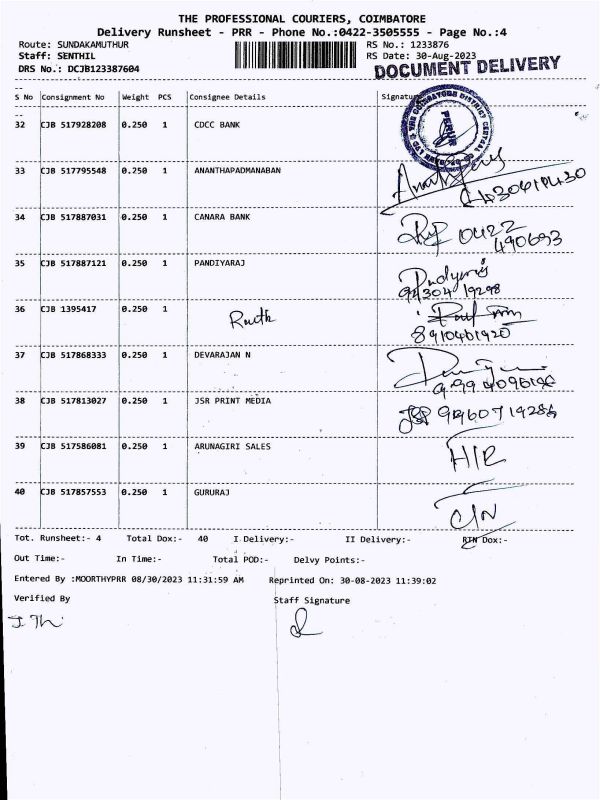 THE PROFESSIONAL COURIERS, COIMBATORE
Delivery Runsheet - PRR - Phone No.:0422-3505555 - Page No.:4
Route: SUNDAKAMUTHUR RS No.: 1233876
Staff: SENTHIL RS Date: 30-Aug-2023
DRS No.: DCJB123387604 DOCUMENT DELIVERY
S No Consignment No Weight PCS Consignee Details Signature
32 CJB 517928208 0.250 1 CDCC BANK
33 CJB 517795548 0.250 1 ANANTHAPADMANABAN
34 CJB 517887031 0.250 1 CANARA BANK
0422
490693
35 CJB 517887121 0.250 1 PANDIYARAJ
94304 19298
36 CJB 1395417 0.250 1
8910461920
37 CJB 517868333 0.250 1 DEVARAJAN N
38 CJB 517813027 0.250 1 JSR PRINT MEDIA
39 CJB 517586081 0.250 1 ARUNAGIRI SALES
40 CJB 517857553 0.250 1 GURURAJ
Tot. Runsheet:- 4 Total Dox:- 40 I Delivery:- II Delivery:- RTN Dox:-
Out Time:- In Time:- Total POD:- Delvy Points:-
Entered By :MOORTHYPRR 08/30/2023 11:31:59 AM Reprinted On: 30-08-2023 11:39:02
Verified By Staff Signature